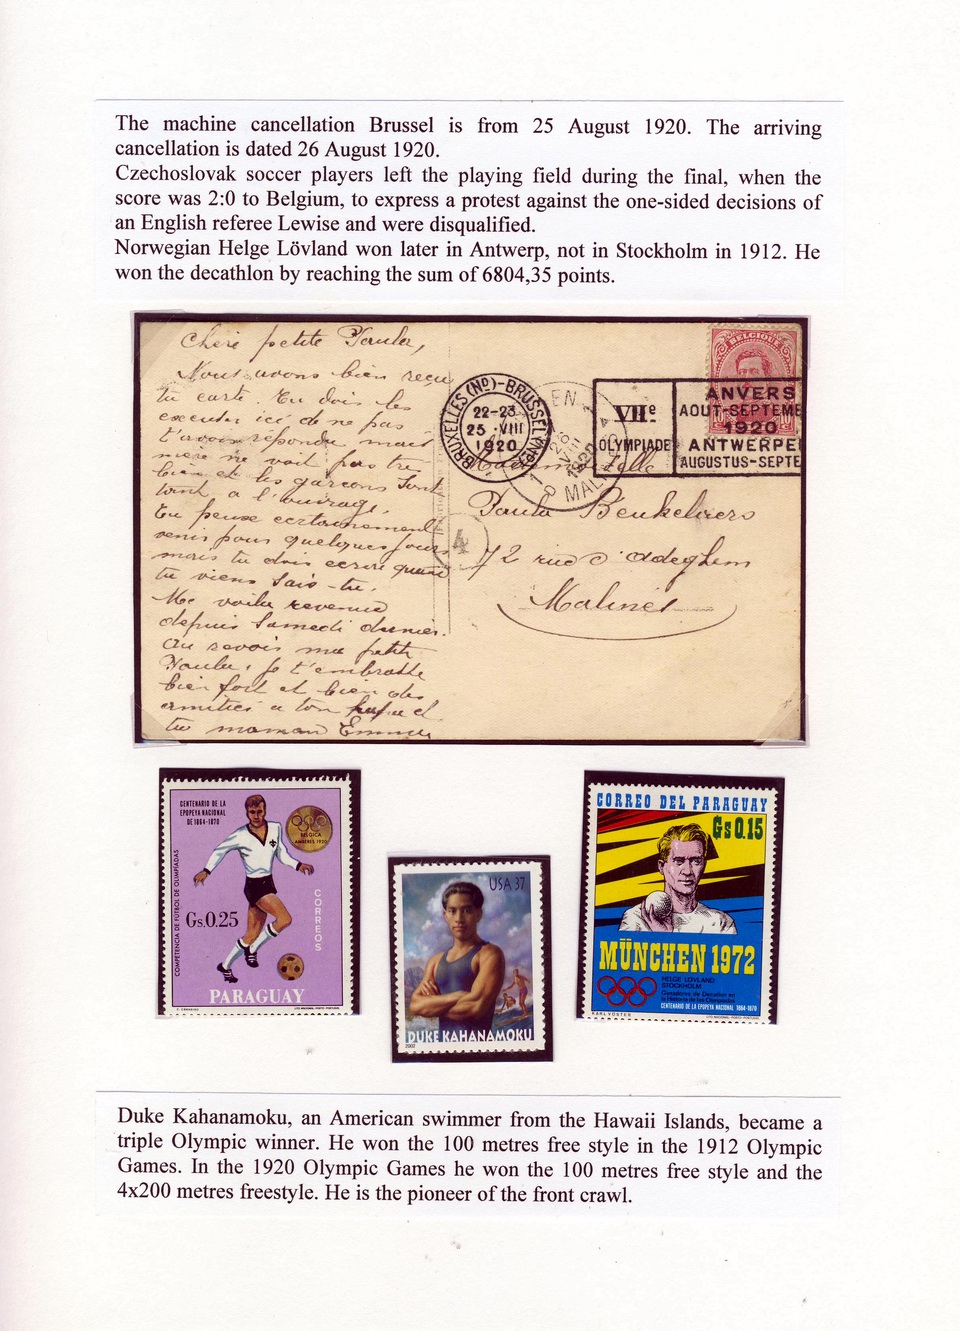 The machine cancellation Brussel is from 25 August 1920. The arriving
cancellation is dated 26 August 1920.
Czechoslovak soccer players left the playing field during the final, when the
score was 2:0 to Belgium, to express a protest against the one-sided decisions of
an English referee Lewise and were disqualified.
Norwegian Helge Lövland won later in Antwerp, not in Stockholm in 1912. He
won the decathlon by reaching the sum of 6804,35 points.
Chère petite Paula,
Nous avons bien reçu
ta carte. Tu dois les
excuser ici de ne pas
t'avoir répondu mais
mère ne voit pas très
bien et les garçons sont
tout à l'ouvrage.
Tu peux certainement
venir pour quelques jours
mais tu dois ecrire quand
tu viens sais-tu.
Me voilà revenue
depuis samedi dernier.
Au revoir ma petite
Paula, je t'embrasse
bien fort et bien des
amitiés à ton papa et
ta maman Emma
BELGIQUE
BRUXELLES (ND)-BRUSSEL
22-23
25 VIII
1920
VIIe
OLYMPIADE
ANVERS
AOUT-SEPTEMB
1920
ANTWERPE
AUGUSTUS-SEPTE
1920
MALIN
4
Mademoiselle
Paula Beukelaers
72 rue d'Adeghem
Malines
CENTENARIO DE LA
EPOPEYA NACIONAL
DE 1864-1870
BELGICA
AMBERES 1920
COMPETENCIA DE FUTBOL DE OLIMPIADAS
Gs.0.25
CORREOS
PARAGUAY
USA 37
DUKE KAHANAMOKU
2002
CORREO DEL PARAGUAY
Gs 0.15
MÜNCHEN 1972
HELGE LOVLAND
STOCKHOLM
Ganadores de Decatlon en
la Historia de las Olimpiadas
CENTENARIO DE LA EPOPEYA NACIONAL 1864-1870
KARL VOSTER
Duke Kahanamoku, an American swimmer from the Hawaii Islands, became a
triple Olympic winner. He won the 100 metres free style in the 1912 Olympic
Games. In the 1920 Olympic Games he won the 100 metres free style and the
4x200 metres freestyle. He is the pioneer of the front crawl.